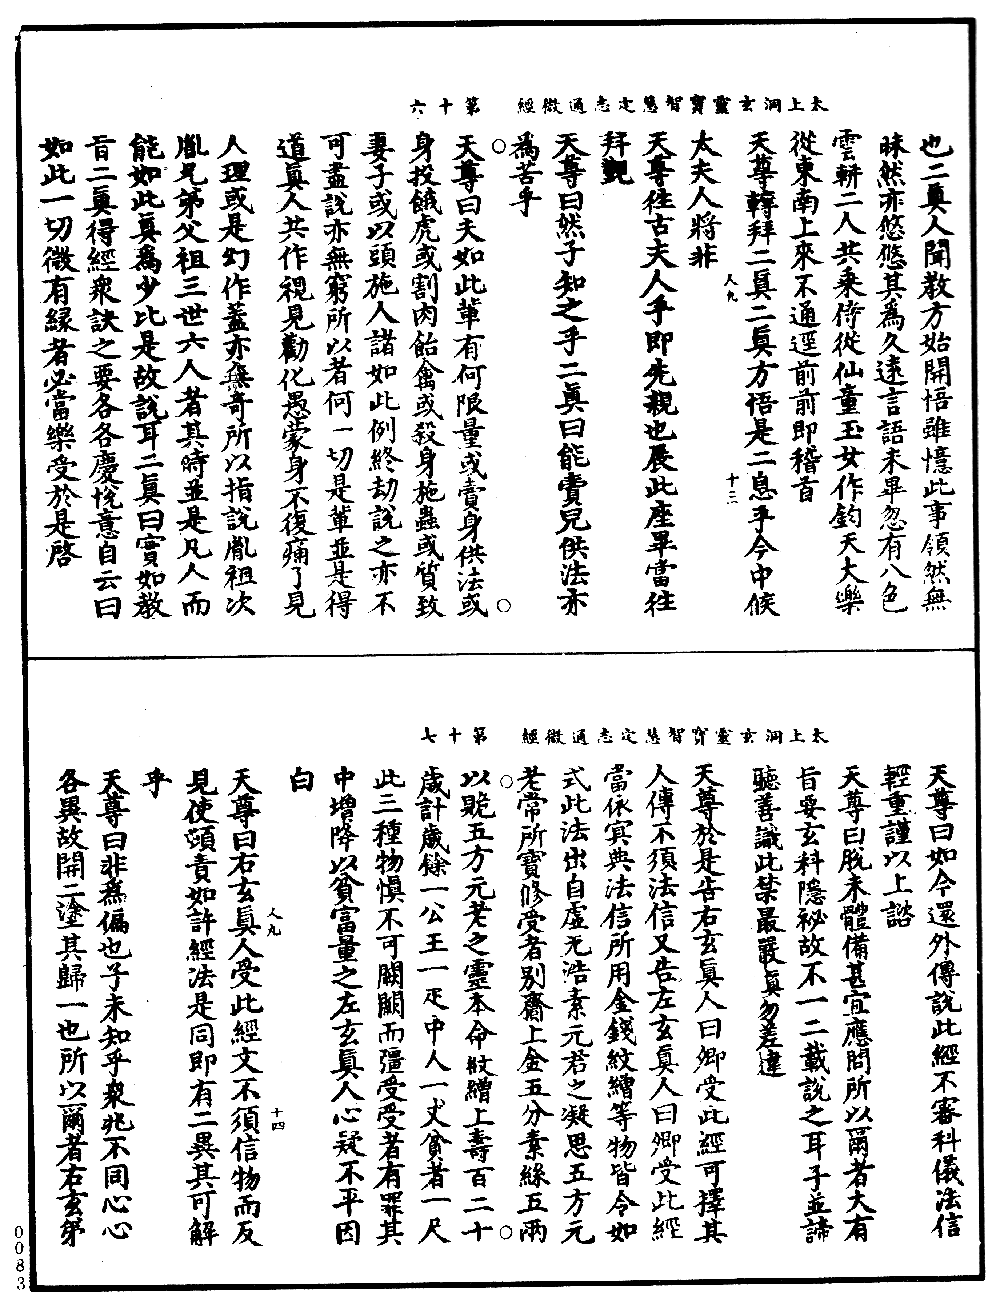 也二眞人聞教方始開悟雖憶此事領然無
昧然亦悠悠其爲久遠言語未畢忽有八色
雲軿二人共乘侍從仙童玉女作鈞天大樂
從東南上來不通逕前前即稽首
天尊轉拜二眞二眞方悟是二息乎今中候
太夫人將非
天尊往古夫人乎即先親也展此座畢當往
拜覲
天尊曰然子知之乎二眞曰能賣兒供法亦
爲苦乎
天尊曰夫如此軰有何限量或賣身供法或
身投餓虎或割肉飴禽或殺身施蟲或質致
妻子或以頭施人諸如此例終劫說之亦不
可盡說亦無窮所以者何一切是軰並是得
道眞人共作視見勸化愚蒙身不復痛了見
人理或是幻作蓋亦無奇所以指說胤祖次
胤兄弟父祖三世六人者其時並是凡人而
能如此眞爲少比是故說耳二眞曰實如教
旨二眞得經衆訣之要各各慶恱意自云曰
如此一切微有緣者必當樂受於是啓
太上洞玄靈寶智慧定志通微經 第十六
人九 十三
天尊曰如今還外傳說此經不審科儀法信
輕重謹以上諮
天尊曰脫未體備甚宜應問所以爾者大有
旨要玄科隱祕故不一二載說之耳子並諦
聽善識此禁最嚴眞勿差違
天尊於是告右玄眞人曰卿受此經可擇其
人傳不須法信又告左玄眞人曰卿受此經
當依宾典法信所用金錢紋繒等物皆令如
式此法出自虛无浩素元君之凝思五方元
老常所寶修受者别齎上金五分素絲五兩
以貺五方元老之靈本命紋繒上壽百二十
歲計歲餘一公王一疋中人一丈貧者一尺
此三種物愼不可闕闕而彊受受者有罪其
中增降以貧富量之左玄眞人心疑不平因
白
天尊曰右玄眞人受此經文不須信物而反
見使頭責如許經法是同即有二異其可解
乎
天尊曰非爲偏也子未知乎衆兆不同心心
各異故開二塗其歸一也所以爾者右玄第
太上洞玄靈寶智慧定志通微經 第十七
人九 十四
0083